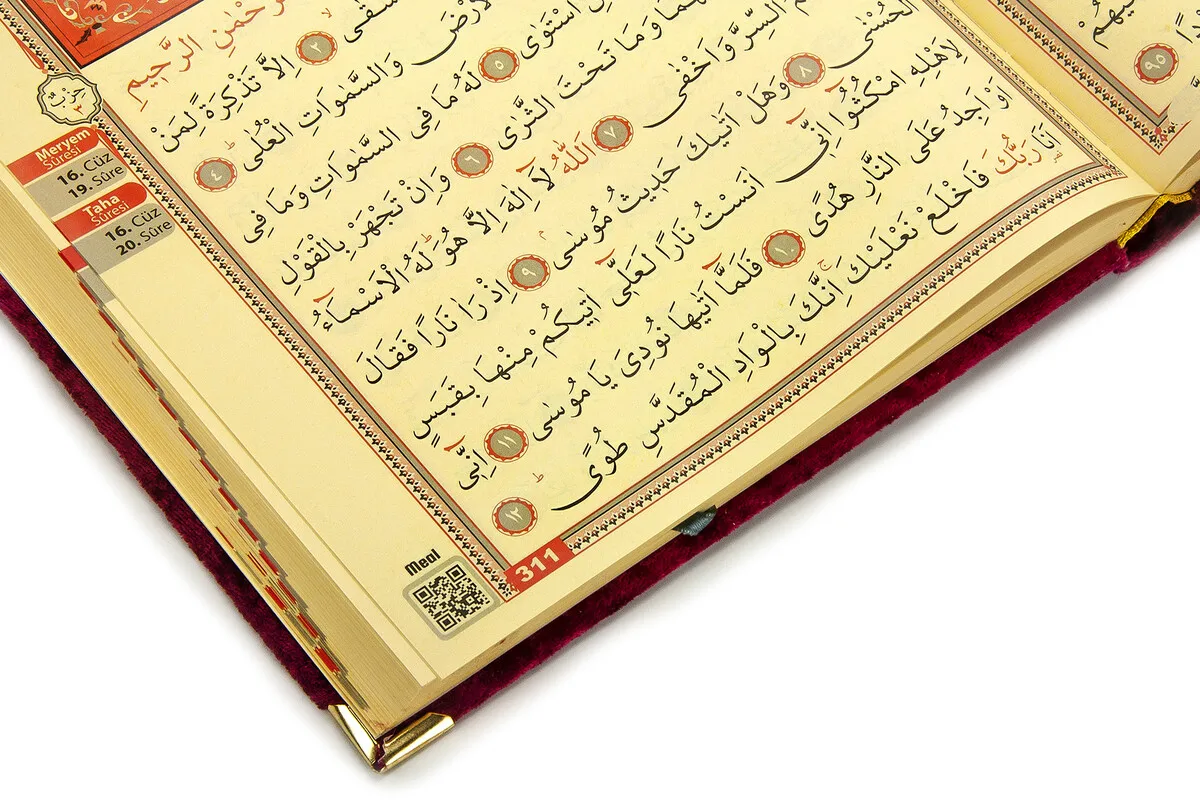 الرَّحِيمِ
٢ اِلَّا تَذْكِرَةً لِمَنْ
وَالسَّمٰوَاتِ الْعُلٰى ٤
اسْتَوٰى ٥ لَهُ مَا فِى السَّمٰوَاتِ وَمَا فِى
وَمَا تَحْتَ الثَّرٰى ٦ وَاِنْ تَجْهَرْ بِالْقَوْلِ
السِّرَّ وَاَخْفٰى ٧ اَللّٰهُ لَا اِلٰهَ اِلَّا هُوَ لَهُ الْاَسْمَاءُ
الْحُسْنٰى ٨ وَهَلْ اَتٰيكَ حَدِيثُ مُوسٰى ٩ اِذْ رَاٰ نَارًا فَقَالَ
لِاَهْلِهِ امْكُثُوا اِنِّى اٰنَسْتُ نَارًا لَعَلِّى اٰتِيكُمْ مِنْهَا بِقَبَسٍ
اَوْ اَجِدُ عَلَى النَّارِ هُدًى ١٠ فَلَمَّا اَتٰيهَا نُودِىَ يَا مُوسٰى ١١ اِنِّى
اَنَا رَبُّكَ فَاخْلَعْ نَعْلَيْكَ اِنَّكَ بِالْوَادِ الْمُقَدَّسِ طُوًى ١٢
حزب
Meryem
Sûresi
16. Cüz
19. Sûre
Taha
Sûresi
16. Cüz
20. Sûre
Meal
311
٩٥